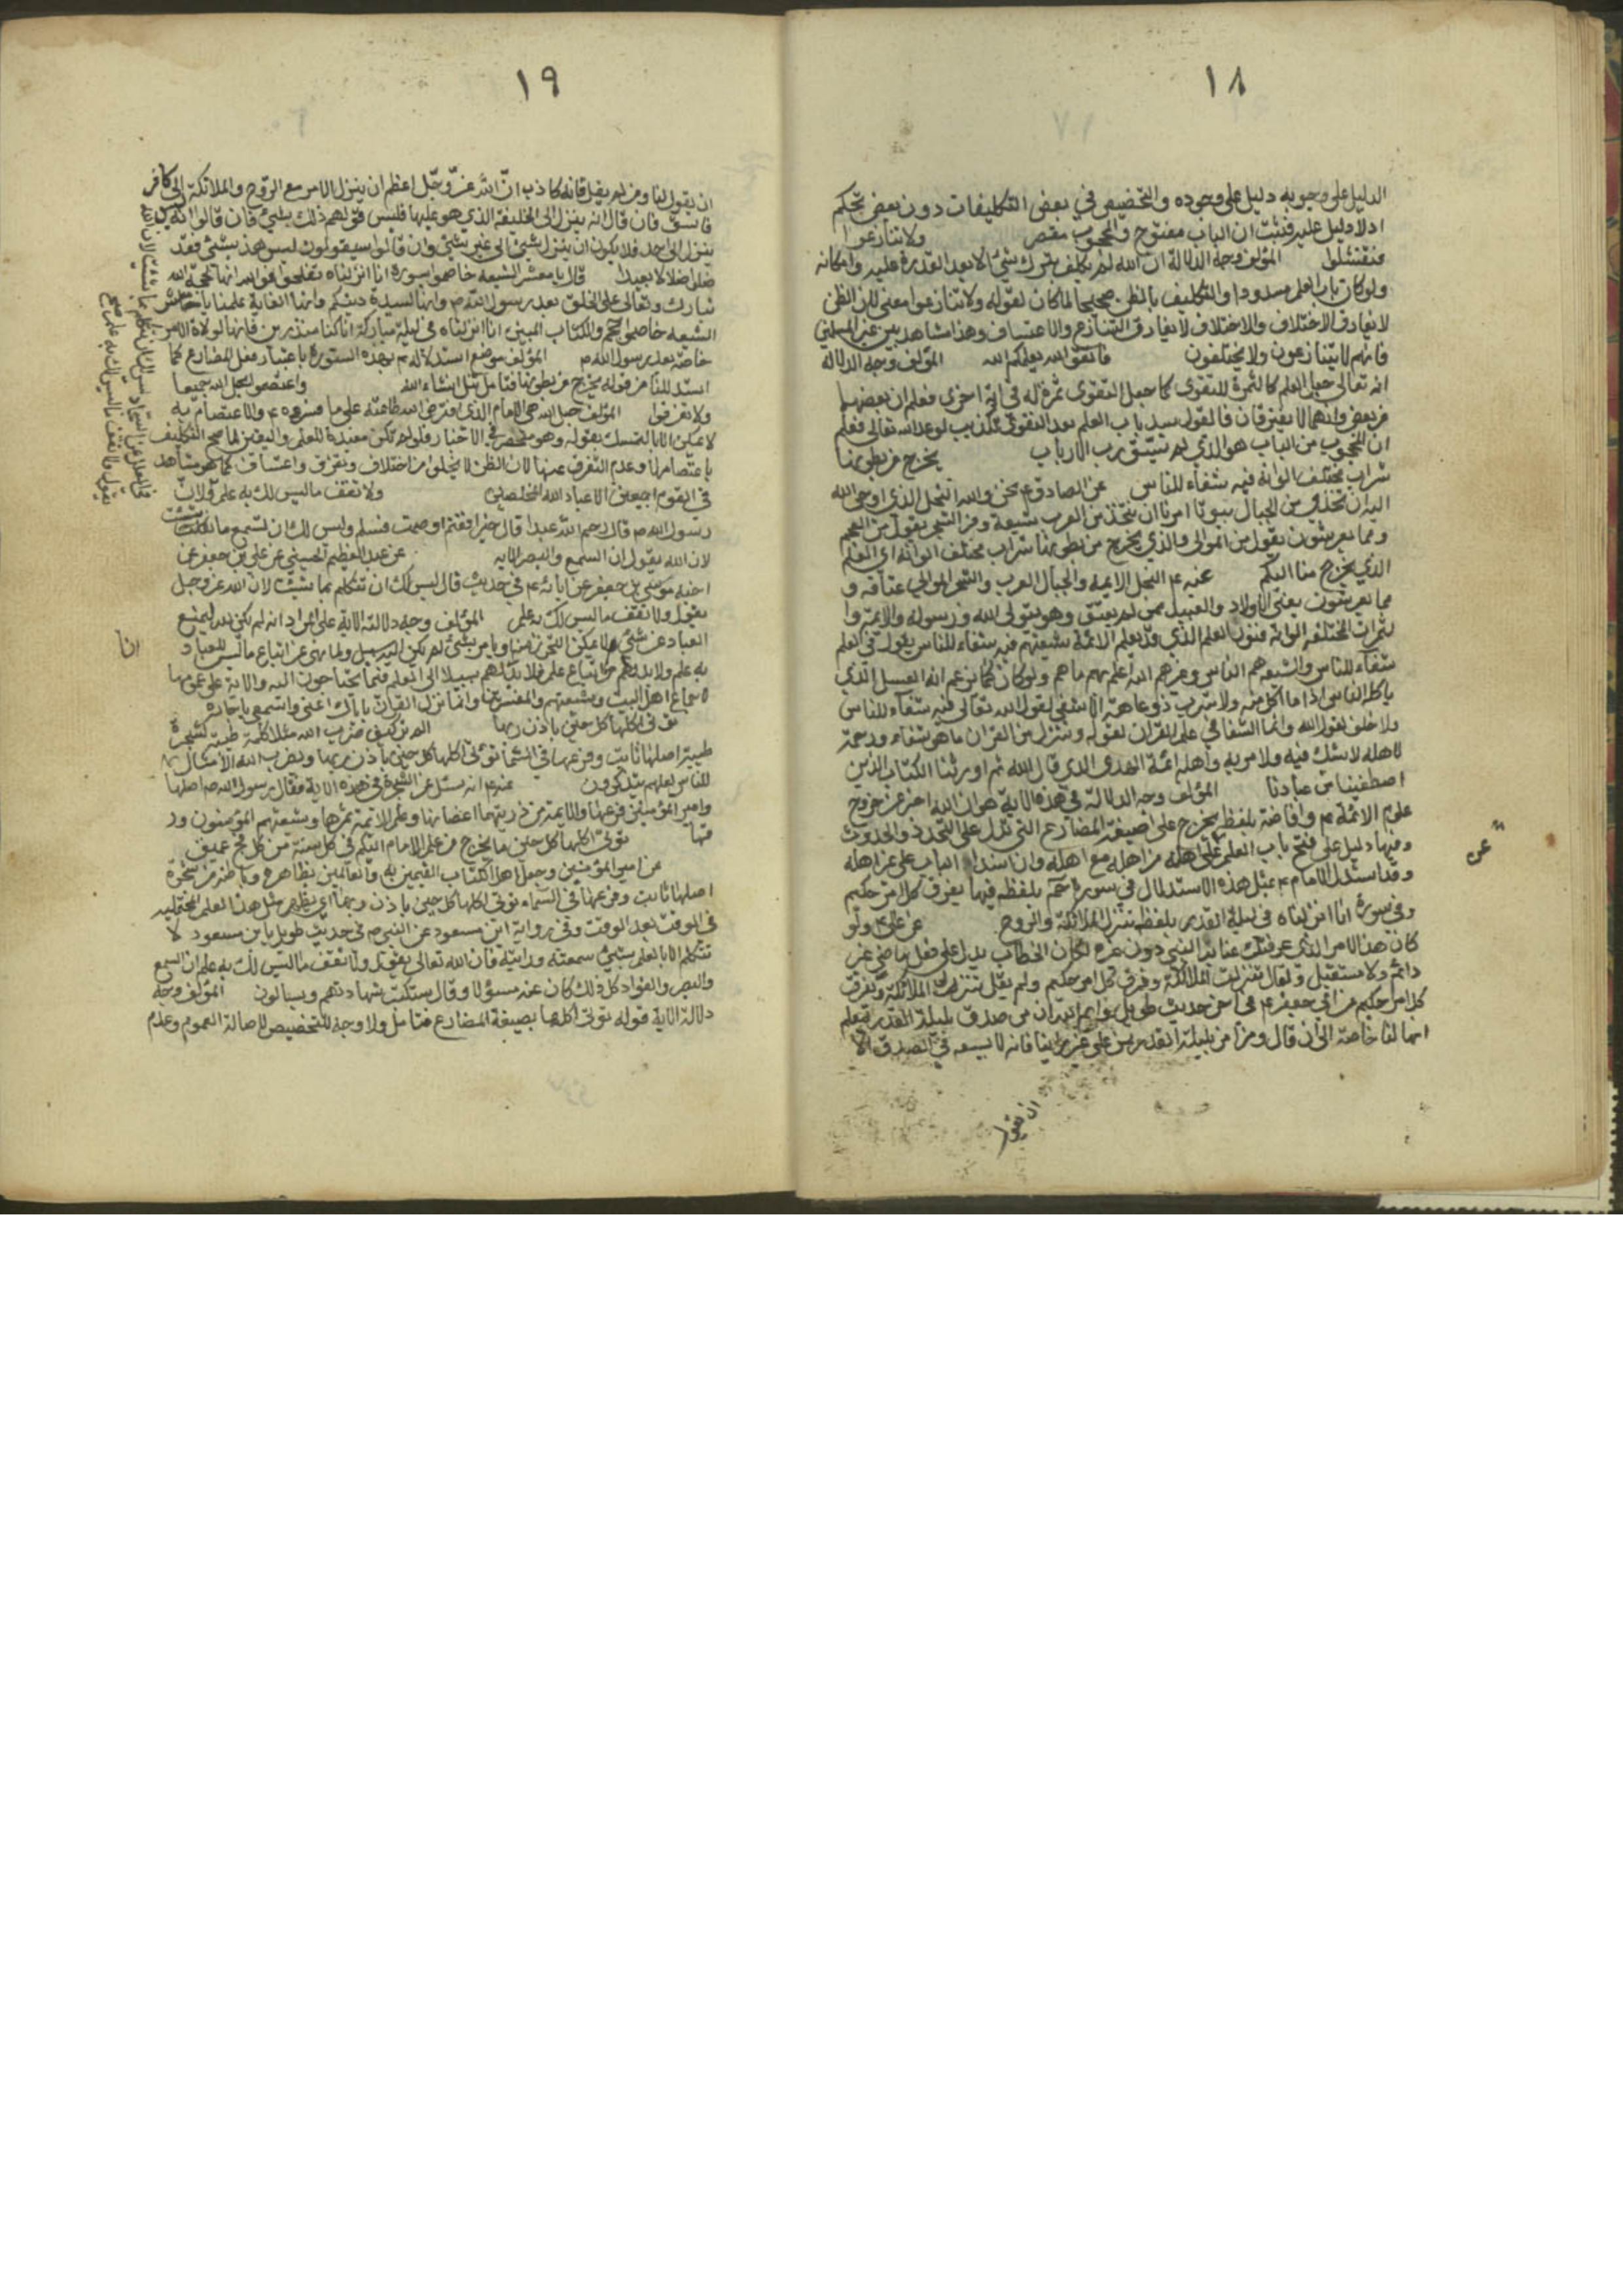 ١٨
الدليل على وجوبه دليل على وجوده والتخصيص في بعض التكليفات دون بعض تحكم
اذ لا دليل عليه فثبت ان الباب مفتوح والمحجوب مقصر ولا تنازعوا
فتفشلوا المؤلف وجه الدلالة ان الله لم يكلف بترك شئ الا بعد القدرة عليه وامكانه
ولو كان باب العلم مسدودا والتكليف بالظن صحيحا لما كان لقوله ولا تنازعوا معنى لان الظن
لا يفارق الاختلاف والاختلاف لا يفارق التنازع والاعتساف وهذا مشاهد بين غير المسلمين
فانهم لا يتنازعون ولا يختلفون فاتقوا الله يعلمكم الله المؤلف وجه الدلالة
انه تعالى جعل العلم كالثمرة للتقوى كما جعل التقوى ثمرة له في اية اخرى فعلم ان بعضهما
من بعض وانهما لا يفترقان فالقول بسد باب العلم بعد التقوى تكذيب لوعد الله تعالى فعلم
ان المحجوب من الباب هو الذي لم يتق رب الارباب يخرج من بطونها
شراب مختلف الوانه فيه شفاء للناس عن الصادق ع نحن والله النحل الذي اوحى الله
اليه ان تتخذي من الجبال بيوتا امرنا ان نتخذ من العرب شيعة ومن الشجر يقول من العجم
ومما يعرشون يقول من الموالي والذي يخرج من بطونها شراب مختلف الوانه اي العلم
الذي يخرج منا اليكم عنه ع النحل الائمة والجبال العرب والشجر الموالي عتاقه و
مما يعرشون يعني الاولاد والعبيد ممن لم يعتق وهو يتولى الله ورسوله والائمة وا
لثمرات المختلفة الوانه فنون العلم الذي قد يعلم الائمة شيعتهم فيه شفاء للناس يقول في العلم
شفاء للناس والشيعة هم الناس وغيرهم الله اعلم بهم ما هم ولو كان كما تزعم انه العسل الذي
ياكله الناس اذا ما اكل منه ولا شرب ذو عاهة الا شفي لقول الله تعالى فيه شفاء للناس
ولا خلف لقول الله وانما الشفا في علم القران لقوله وننزل من القران ما هو شفاء ورحمة
لاهله لا شك فيه ولا مرية واهله ائمة الهدى الذي قال الله ثم اورثنا الكتاب الذين
اصطفينا من عبادنا المؤلف وجه الدلالة في هذه الاية هو ان الله اخبر عن خروج
علوم الائمة ع وافاضته بلفظ يخرج على صيغة المضارع التي تدل على التجدد والحدوث
وفيها دليل على فتح باب العلم على اهله من اهله مع اهله وانسداد الباب على غير اهله
وقد استدل الامام ع بمثل هذه الاستدلال في سورة حم بلفظه فيها يفرق كل امر حكيم
وفي سورة انا انزلناه في ليلة القدر بلفظ تنزل الملائكة والروح عن علي ع ولو
كان هذا الامر الذي عرفتك عنا به النبي دون غيره لكان الخطاب يدل على فعل ماض غير
دائم ولا مستقبل ولقال تنزلت الملائكة وفرق كل امر حكيم ولم يقل تنزل الملائكة ويفرق
كل امر حكيم عن ابي جعفر ع في اخر حديث طويل وايم الله ان من صدق بليلة القدر ليعلم
انها لنا خاصة الى ان قال ومن امن بليلة القدر ممن على غير راينا فانه لا يسعه في الصدق الا
ان يقول
عن
١٩
ان يقول لنا ومن لم يقل فانه كاذب ان الله عز وجل اعظم ان ينزل الامر مع الروح والملائكة الى كافر
فاسق فان قال انه ينزل الى الخليفة الذي هو عليها فليس قولهم ذلك بشئ فان قالوا انه ليس
ينزل الى احد فلا يكون ان ينزل شئ الى غير شئ وان قالوا سيقولون ليس هذا بشئ فقد
ضلوا ضلالا بعيدا قال يا معشر الشيعة خاصموا بسورة انا انزلناه تفلحوا فوالله انها لحجة الله
تبارك وتعالى على الخلق بعد رسول الله ص وانها لسيدة دينكم وانها لغاية علمنا يا معشر
الشيعة خاصموا بحم والكتاب المبين انا انزلناه في ليلة مباركة انا كنا منذرين فانها لولاة الامر
خاصة بعد رسول الله ص المؤلف موضع استدلاله ع بهذه السورة باعتبار فعل المضارع كما
استدللنا من قوله يخرج من بطونها فتامل تنل انشاء الله واعتصموا بحبل الله جميعا
ولا تفرقوا المؤلف حبل الله هو الامام الذي افترض الله طاعته على ما فسروه ع والاعتصام به
لا يمكن الا بالتمسك بقوله وهو منحصر في الاخبار فلو لم تكن مفيدة للعلم واليقين لما صح التكليف
باعتصامها وعدم التفرق عنها لان الظن لا يخلو من اختلاف وتفرق واعتساف كما هو مشاهد
في القوم اجمعين الا عباد الله المخلصين ولا تقف ما ليس لك به علم الان
رسول الله ص قال رحم الله عبدا قال خيرا فغنم او صمت فسلم وليس لك ان تسمع ما شئت
لان الله يقول ان السمع والبصر الاية عن عبد العظيم الحسيني عن علي بن جعفر عن
اخيه موسى بن جعفر عن ابائه ع في حديث قال ليس لك ان تتكلم بما شئت لان الله عز وجل
يقول ولا تقف ما ليس لك به علم المؤلف وجه دلالة الاية على المراد انه لم يكن الله ليمنع
العباد عن شئ لا يمكن التحرز منه ويامر بشئ لم يكن اليه سبيل ولما نهى عن اتباع ما ليس للعباد
به علم ولا بد لهم من اتباع علم فلا بد لهم سبيلا الى العلم فيما يحتاجون اليه والاية على عمومها
لاجماع اهل البيت وشيعتهم والمفسرين وانما نزل القران باياك اعني واسمعي يا جاره
تؤتي اكلها كل حين باذن ربها الم تر كيف ضرب الله مثلا كلمة طيبة كشجرة
طيبة اصلها ثابت وفرعها في السماء تؤتي اكلها كل حين باذن ربها ويضرب الله الامثال
للناس لعلهم يتذكرون عنه ع انه سئل عن الشجرة في هذه الاية فقال رسول الله ص اصلها
وامير المؤمنين فرعها والائمة من ذريتهما اغصانها وعلم الائمة ثمرها وشيعتهم المؤمنون ور
قها تؤتي اكلها كل حين ما يخرج من علم الامام اليكم في كل سنة من كل فج عميق
عن امير المؤمنين وجعل اهل الكتاب القيمين به والعالمين بظاهره وباطنه من شجرة
اصلها ثابت وفرعها في السماء تؤتي اكلها كل حين باذن ربها اي يظهر مثل هذا العلم المحتمليه
في الوقت بعد الوقت وفي رواية ابن مسعود عن النبي ص في حديث طويل يا بن مسعود لا
تتكلم الا بالعلم بشئ سمعته ورايته فان الله تعالى يقول ولا تقف ما ليس لك به علم ان السمع
والبصر والفؤاد كل ذلك كان عنه مسؤلا وقال ستكتب شهادتهم ويسالون المؤلف وجه
دلالة الاية قوله تؤتي اكلها بصيغة المضارع فتامل ولا وجه للتخصيص لاصالة العموم وعدم
في العلل عن السجاد ليس لك ان تتكلم بما شئت لان الله
يقول ولا تقف ما ليس لك به علم صح